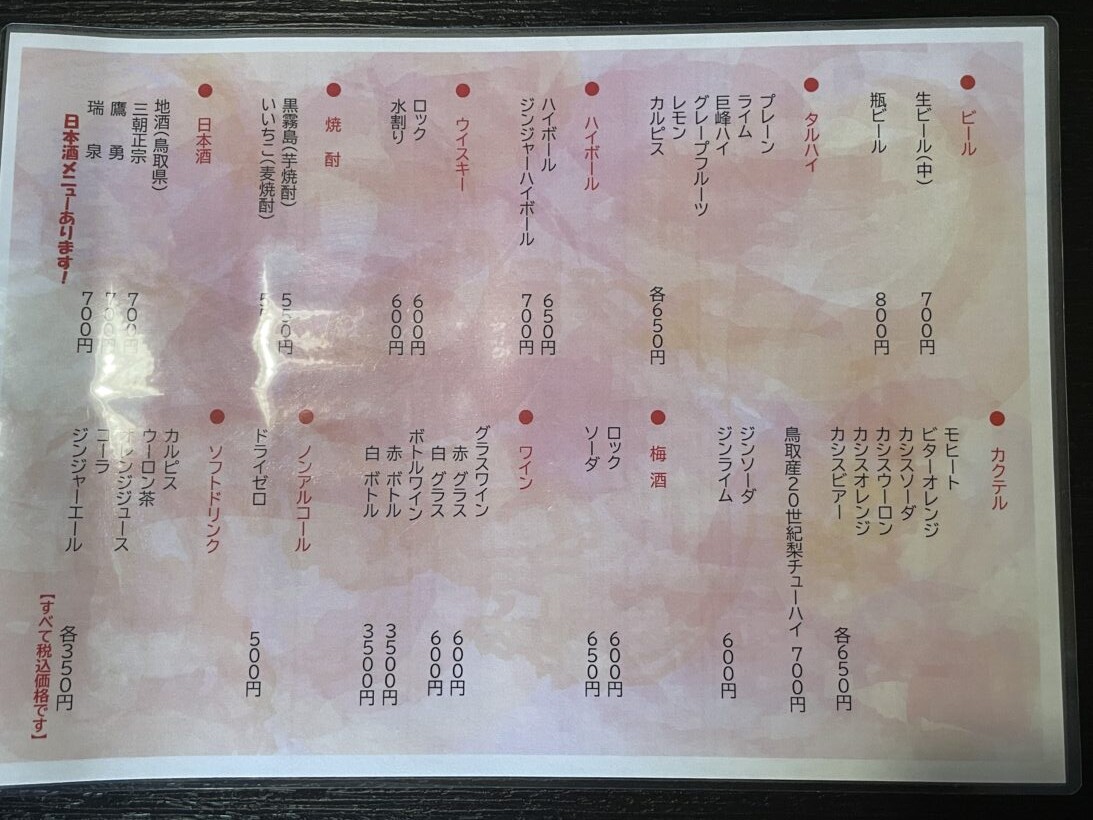 ●ビール
生ビール(中) 700円
瓶ビール 800円
●タルハイ
プレーン
ライム
巨峰ハイ
グレープフルーツ
レモン
カルピス 各650円
●ハイボール
ハイボール 650円
ジンジャーハイボール 700円
●ウイスキー
ロック 600円
水割り 600円
●焼酎
黒霧島(芋焼酎) 550円
いいちこ(麦焼酎)
●日本酒
地酒(鳥取県)
三朝正宗 700円
鷹勇 700円
瑞泉 700円
日本酒メニューあります!
●カクテル
モヒート
ビターオレンジ
カシスソーダ
カシスウーロン
カシスオレンジ
カシスビアー 各650円
鳥取産20世紀梨チューハイ 700円
ジンソーダ
ジンライム 600円
●梅酒
ロック 600円
ソーダ 650円
●ワイン
グラスワイン
赤 グラス 600円
白 グラス 600円
ボトルワイン
赤 ボトル 3500円
白 ボトル 3500円
●ノンアルコール
ドライゼロ 500円
●ソフトドリンク
カルピス
ウーロン茶
オレンジジュース
コーラ
ジンジャーエール 各350円
【すべて税込価格です】